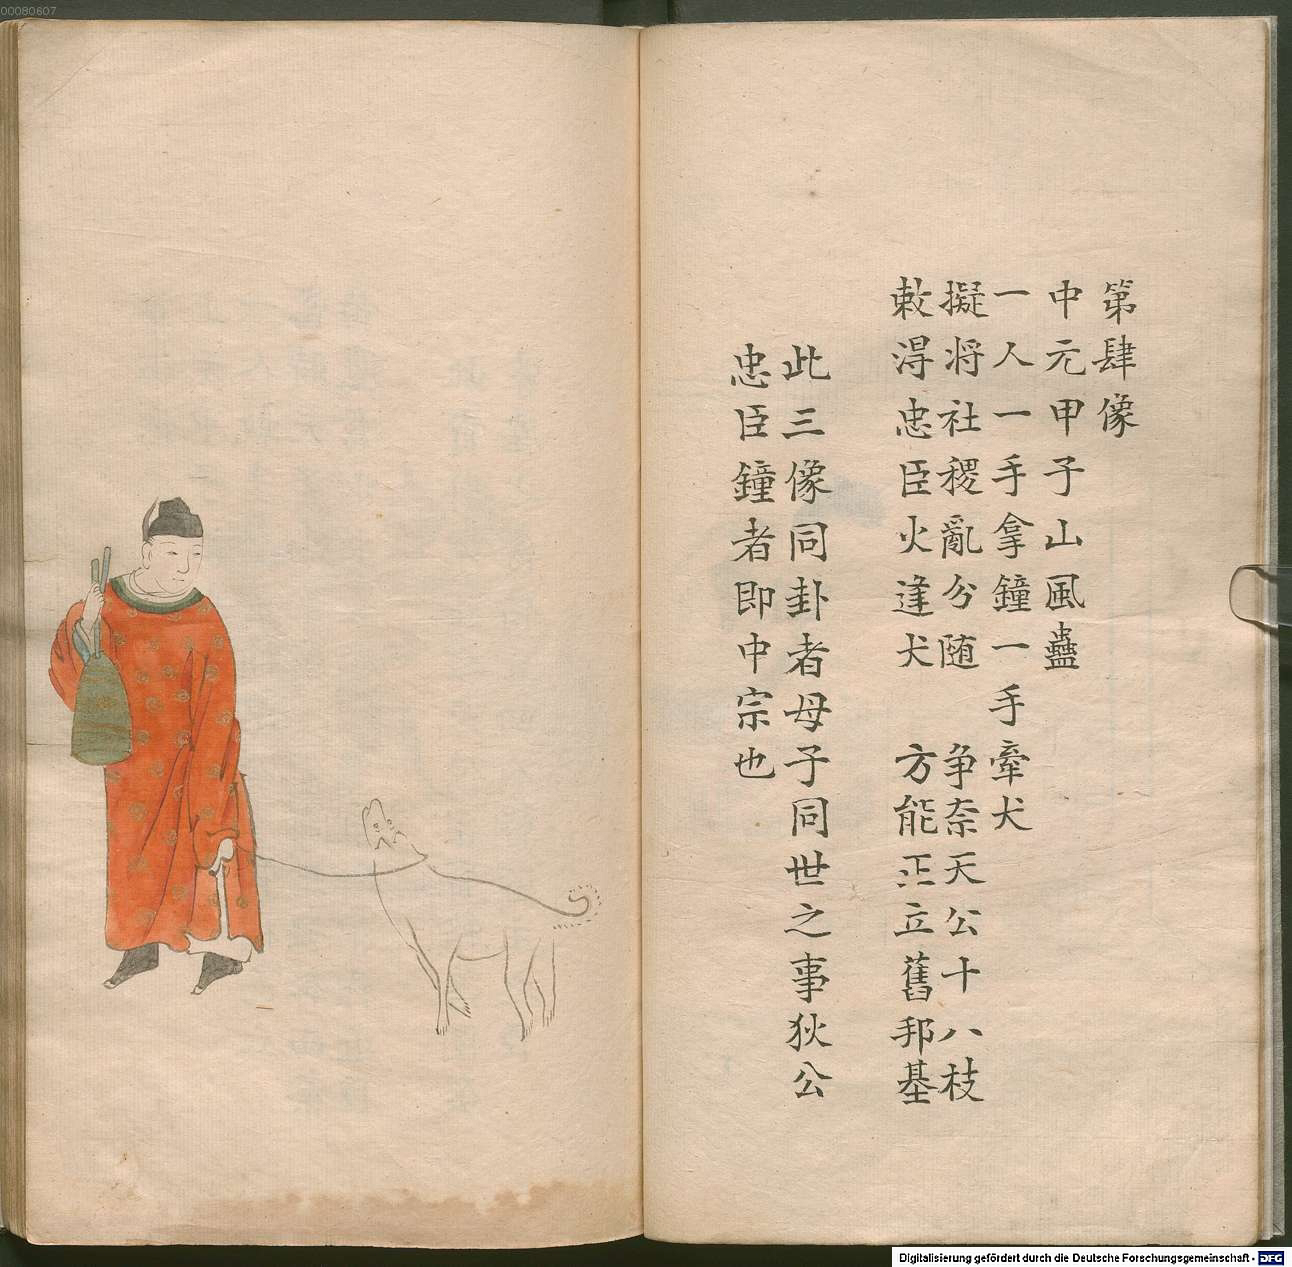 00080607
第肆像
中元甲子山風蠱
一人一手拿鐘一手牽犬
擬將社稷亂分随　争奈天公十八枝
敕淂忠臣火逢犬　方能正立舊邦基
此三像同卦者母子同世之事狄公
忠臣鐘者即中宗也
Digitalisierung gefördert durch die Deutsche Forschungsgemeinschaft - DFG